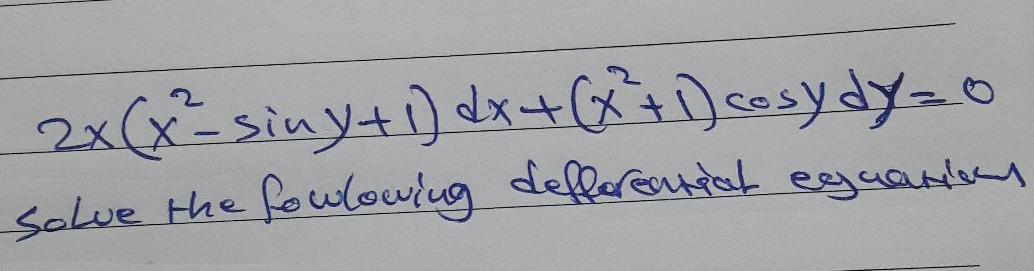 2x(x²-siny+1)dx+(x²+1)cosydy=0
solve the fowlowing defferential eqquations